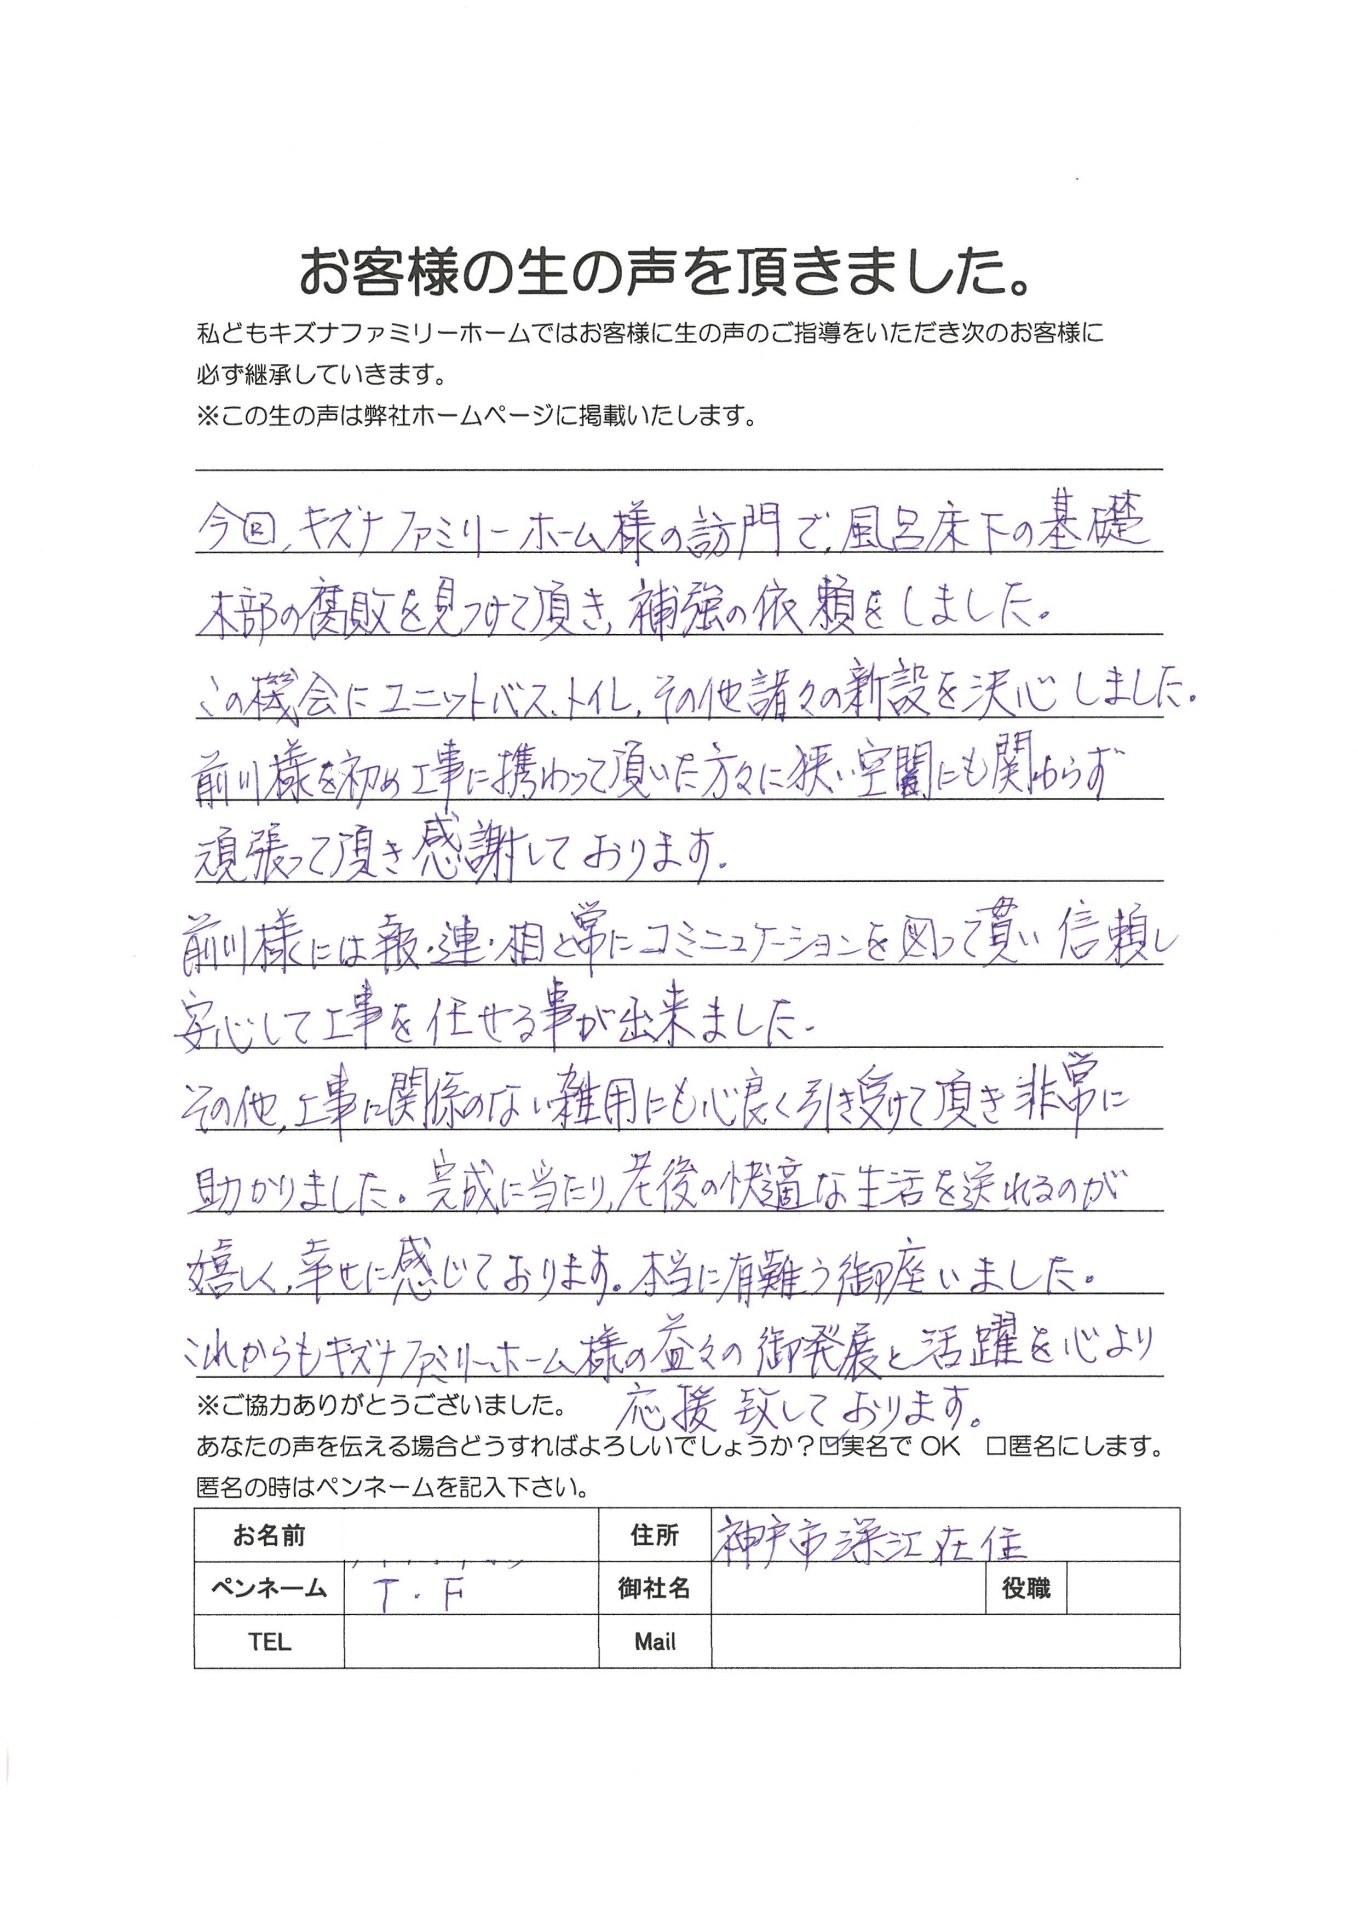 お客様の生の声を頂きました。
私どもキズナファミリーホームではお客様に生の声のご指導をいただき次のお客様に
必ず継承していきます。
※この生の声は弊社ホームページに掲載いたします。
今回、キズナファミリーホーム様の訪門で、風呂床下の基礎
木部の腐敗を見つけて頂き、補強の依頼をしました。
この機会にユニットバス、トイレ、その他諸々の新設を決心しました。
前川様を初め工事に携わって頂いた方々に狭い空間にも関わらず
頑張って頂き感謝しております。
前川様には報・連・相と常にコミニュケーションを図って貰い信頼し
安心して工事を任せる事が出来ました。
その他、工事に関係のない雑用にも心良く引き受けて頂き非常に
助かりました。完成に当たり、老後の快適な生活を送れるのが
嬉しく、幸せに感じております。本当に有難う御座いました。
これからもキズナファミリーホーム様の益々の御発展と活躍を心より
※ご協力ありがとうございました。 応援致しております。
あなたの声を伝える場合どうすればよろしいでしょうか?☑実名でOK □匿名にします。
匿名の時はペンネームを記入下さい。
お名前 住所 神戸市深江在住
ペンネーム T.F 御社名 役職
TEL Mail